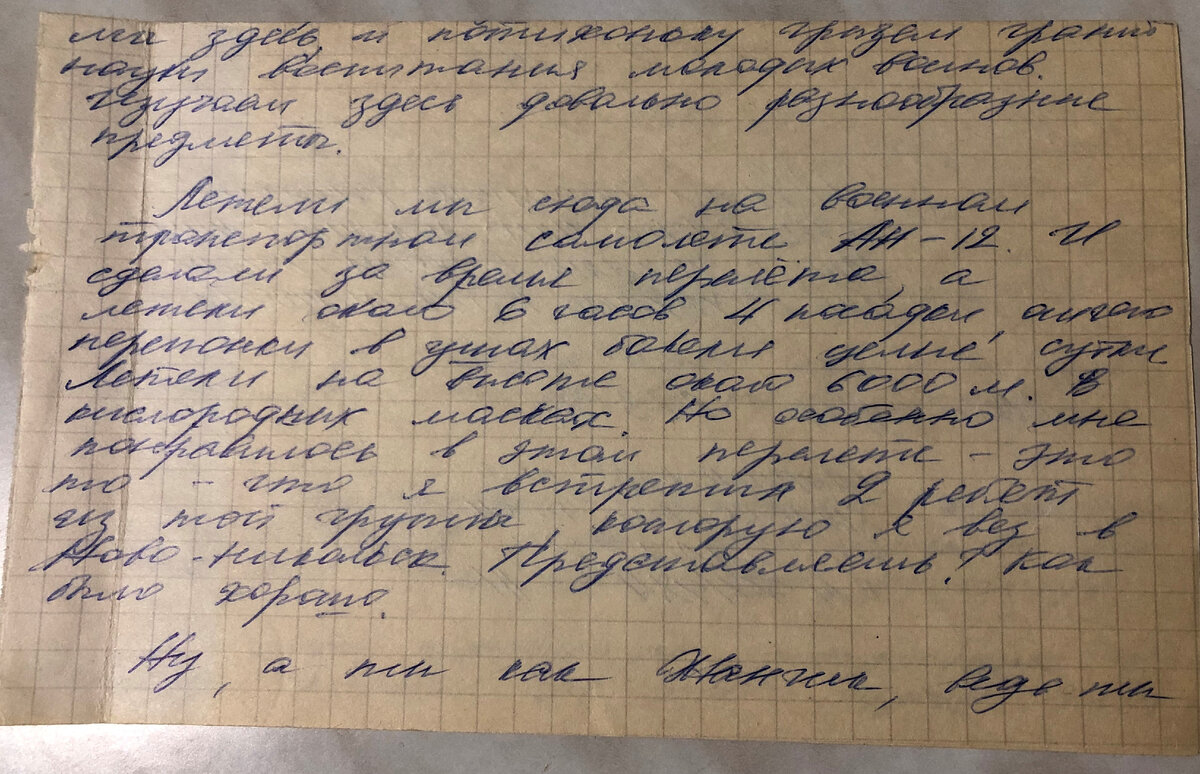 мы здесь и потихоньку грызем гранит
науки воспитания молодых воинов.
Изучаем здесь довольно разнообразные
предметы.
Летели мы сюда на военном
транспортном самолете АН-12. И
сделали за время перелёта, а
летели около 6 часов 4 посадки,
перепонки в ушах болели целые сутки
Летели на высоте около 6000 м. В
кислородных масках. Но особенно мне
понравилось в этом перелете - это
то - что я встретил 2 ребят
из той группы, которую я вез в
Ново-Никольск. Представляешь! как
было хорошо.
Ну, а ты как Жанчик, ведь ты